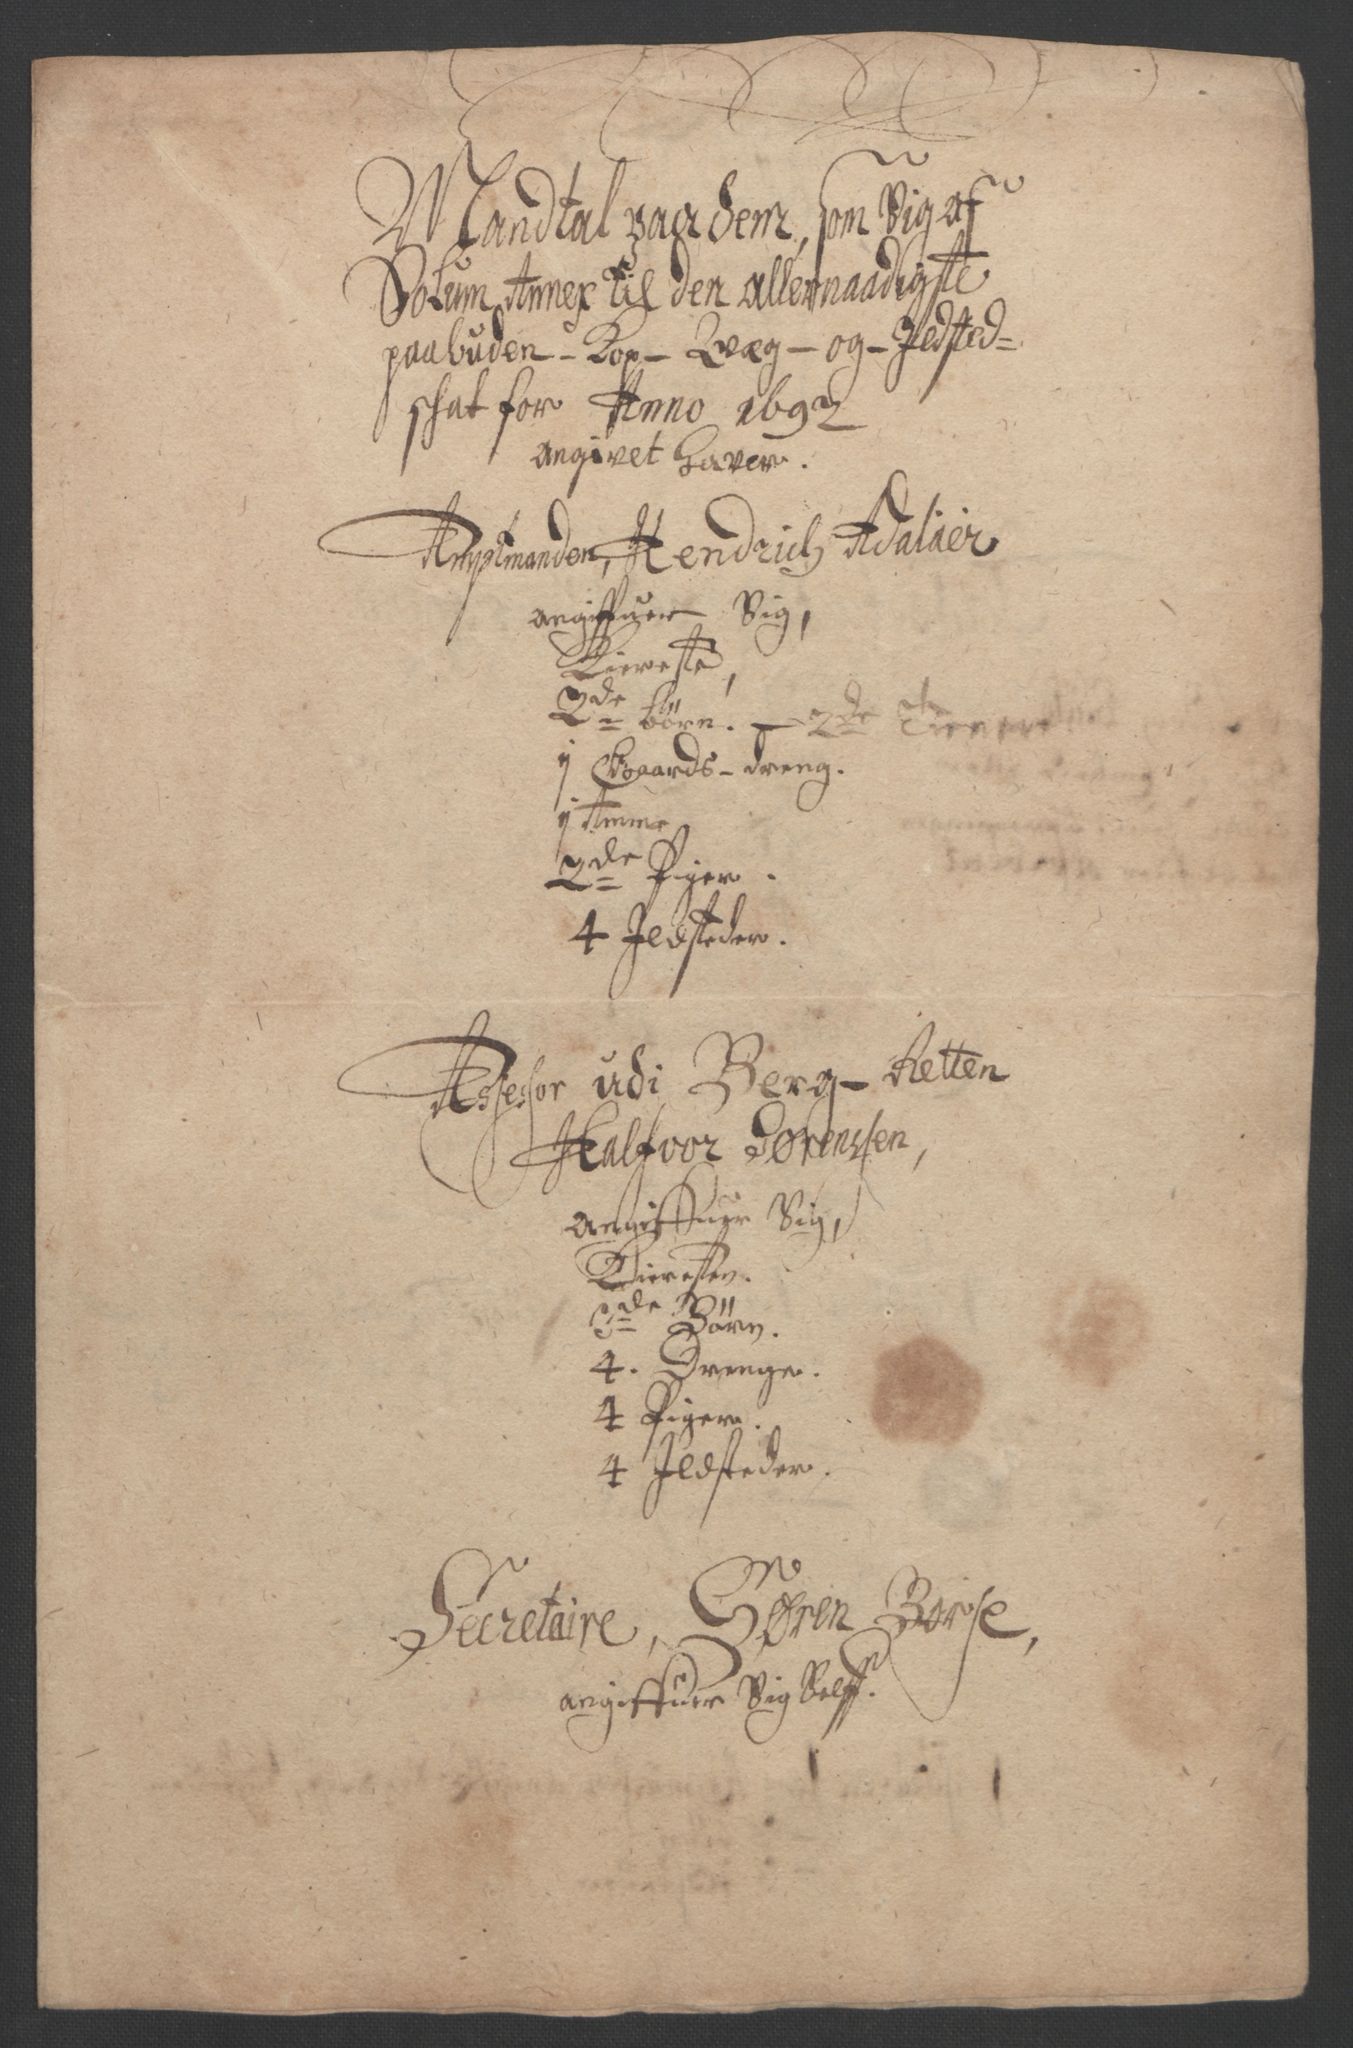 Mandtal paa dem, som Sig af
Solum Annex til den allernaadigste
paabuden - Kop - Qvæg - og - Jldsted=
schat for Anno 1692
angivet haver.
Amptmanden, Hendrich Adalaer
angiffuer Sig,
Kiereste,
2de börn. — 2de Tienere
j Gaards-dreng.
j Amme
2de Piger.
4 Jldsteder.
Assessor udi Berg-Retten
Halfvor Sørensen,
angiffuer Sig,
Kieresten.
3de Börn.
4. Drenge.
4 Piger.
4 Jldsteder.
Secretaire, Søren Borse,
angiffuer Sig Selff.